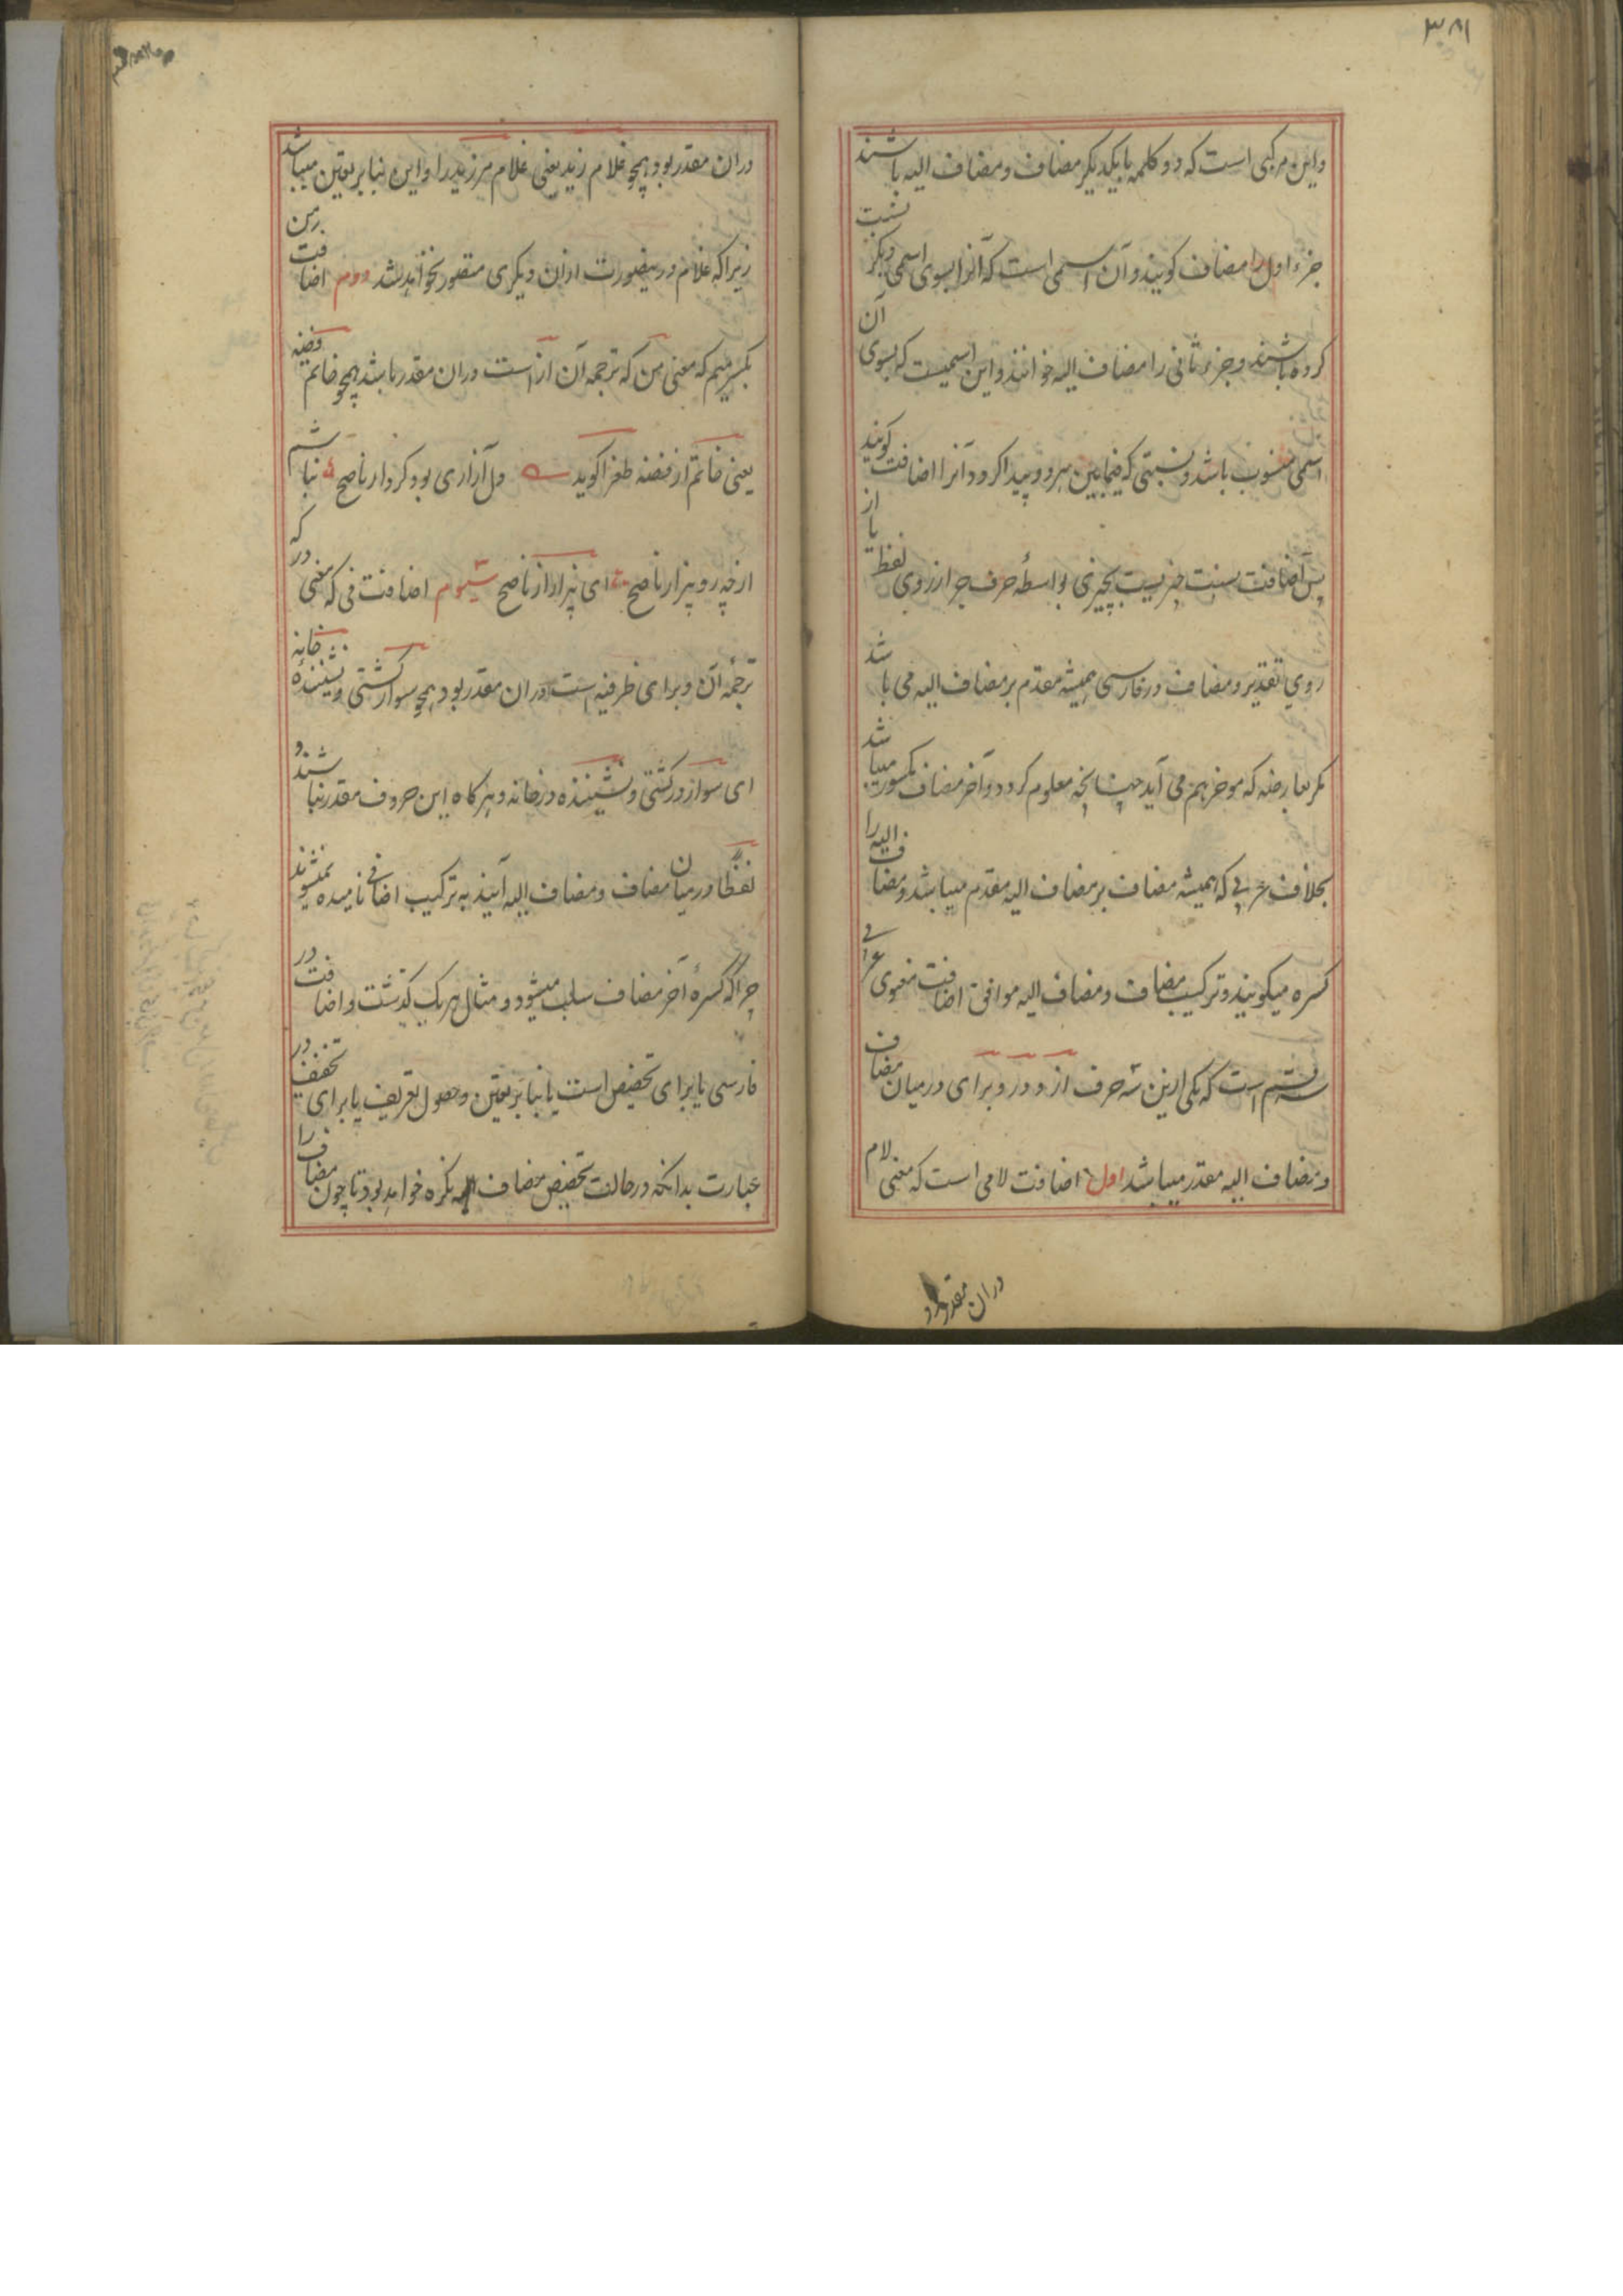 ۳۸۱
واین مرکبی است که دو کلمه بایکدیگر مضاف ومضاف الیه باشند
جزء اول را مضاف کویند وآن اسمی است که آنرا بسوی اسمی دیگر نسبت
کرده باشند وجزء ثانی را مضاف الیه خوانند واین اسمیست که بسوی آن
اسمی منسوب باشد ونسبتی که فیمابین هردو پیدا کردد آنرا اضافت کویند
پس اضافت نسبت چیزیست بچیزی بواسطهٔ حرف جر از روی لفظ یا از
روی تقدیر ومضاف در فارسی همیشه مقدم بر مضاف الیه می باشد
مکر بعارضه که موخر هم می آید چنانچه معلوم کردد وآخر مضاف مکسور میباشد
بخلاف عربی که همیشه مضاف بر مضاف الیه مقدم میباشد ومضاف الیه را
کسره میکویند وترکیب مضاف ومضاف الیه موافق اضافت معنوی عربی
سه قسم است که یکی ازین سه حرف از ودر وبرای درمیان مضاف
ومضاف الیه مقدر میباشد اول اضافت لامی است که معنی لام
دران مقدر بود
دران مقدر بود همچو غلام زید یعنی غلام مر زید را واین بنابر تعین میباشد
زیراکه غلام درینصورت ازان دیکری متصور نخواهد شد دوم اضافت من
بکسر میم که معنی من که ترجمه آن از است دران مقدر باشد همچو خاتم فضه
یعنی خاتم از فضه طغرا کوید دل آزاری بود کردار ناصح نباشم
از چه رو بیزار ناصح ای بیزار از ناصح سیوم اضافت فی که معنی در که
ترجمهٔ آن وبرای ظرفیه است دران مقدر بود همچو سوار کشتی ونشینندهٔ خانه
ای سوار در کشتی ونشیننده در خانه وهرکاه این حروف مقدر نباشند و
لفظًا درمیان مضاف ومضاف الیه آیند به ترکیب اضافی نامیده نمیشوند
چراکه کسرهٔ آخر مضاف سلب میشود ومثال هریک کذشت واضافت در
فارسی یا برای تخصیص است یا بنابر تعین وحصول تعریف یا برای تخفیف در
عبارت بدانکه در حالت تخصیص مضاف الیه نکره خواهد بود تا چون مضاف را